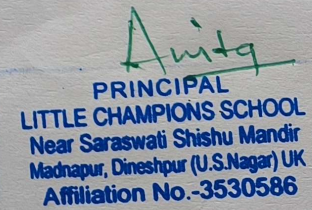 Anita
PRINCIPAL
LITTLE CHAMPIONS SCHOOL
Near Saraswati Shishu Mandir
Madnapur, Dineshpur (U.S.Nagar) UK
Affiliation No.-3530586